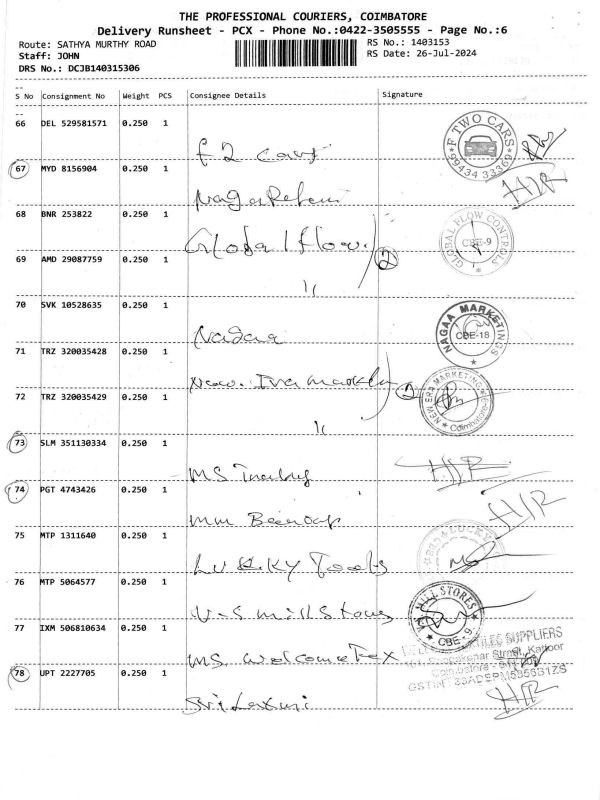 THE PROFESSIONAL COURIERS, COIMBATORE
Delivery Runsheet - PCX - Phone No.:0422-3505555 - Page No.:6
Route: SATHYA MURTHY ROAD
RS No.: 1403153
Staff: JOHN
RS Date: 26-Jul-2024
DRS No.: DCJB140315306
--
S No Consignment No Weight PCS Consignee Details Signature
--
66 DEL 529581571 0.250 1
F TWO CARS
99434 33369
f 2 cars
67 MYD 8156904 0.250 1
H/R
68 BNR 253822 0.250 1
Global flow.
GLOBAL FLOW CONTROLS
CBE-9
69 AMD 29087759 0.250 1
2
11
70 SVK 10528635 0.250 1
NAGAA MARKETINGS
CBE-18
71 TRZ 320035428 0.250 1
2
NEW ERA MARKETING
Coimbatore
72 TRZ 320035429 0.250 1
11
73 SLM 351130334 0.250 1
H/R
MS Trading
74 PGT 4743426 0.250 1
H/R
75 MTP 1311640 0.250 1
LUCKY
Lukky Tools
76 MTP 5064577 0.250 1
MILL STORES
CBE-9
V-S mill Stores
77 IXM 506810634 0.250 1
SUPPLIERS
Street, Kattoor
MS. welcome Tex
78 UPT 2227705 0.250 1
H/R
Sri Laxmi